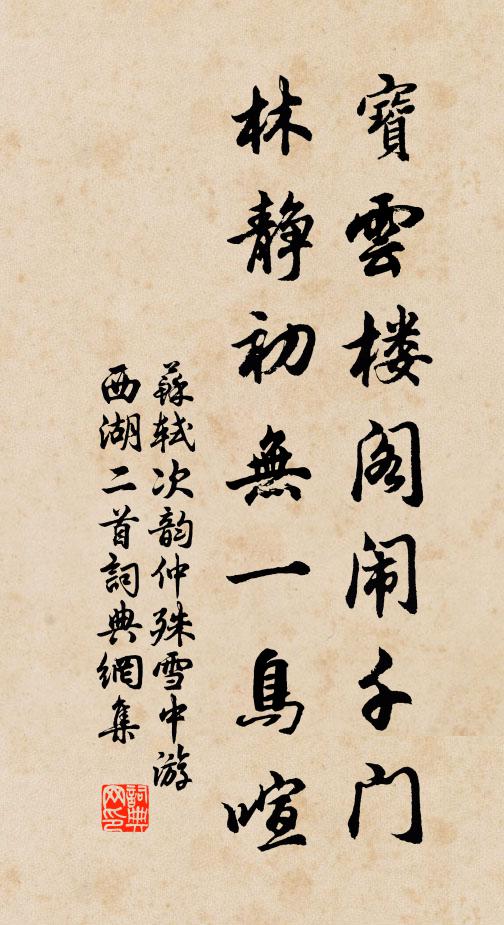 寶雲楼阁闹千门
林静初無一鳥喧
蘇轼次韵仲殊雪中游
西湖二首詞典網集
詞典
网印